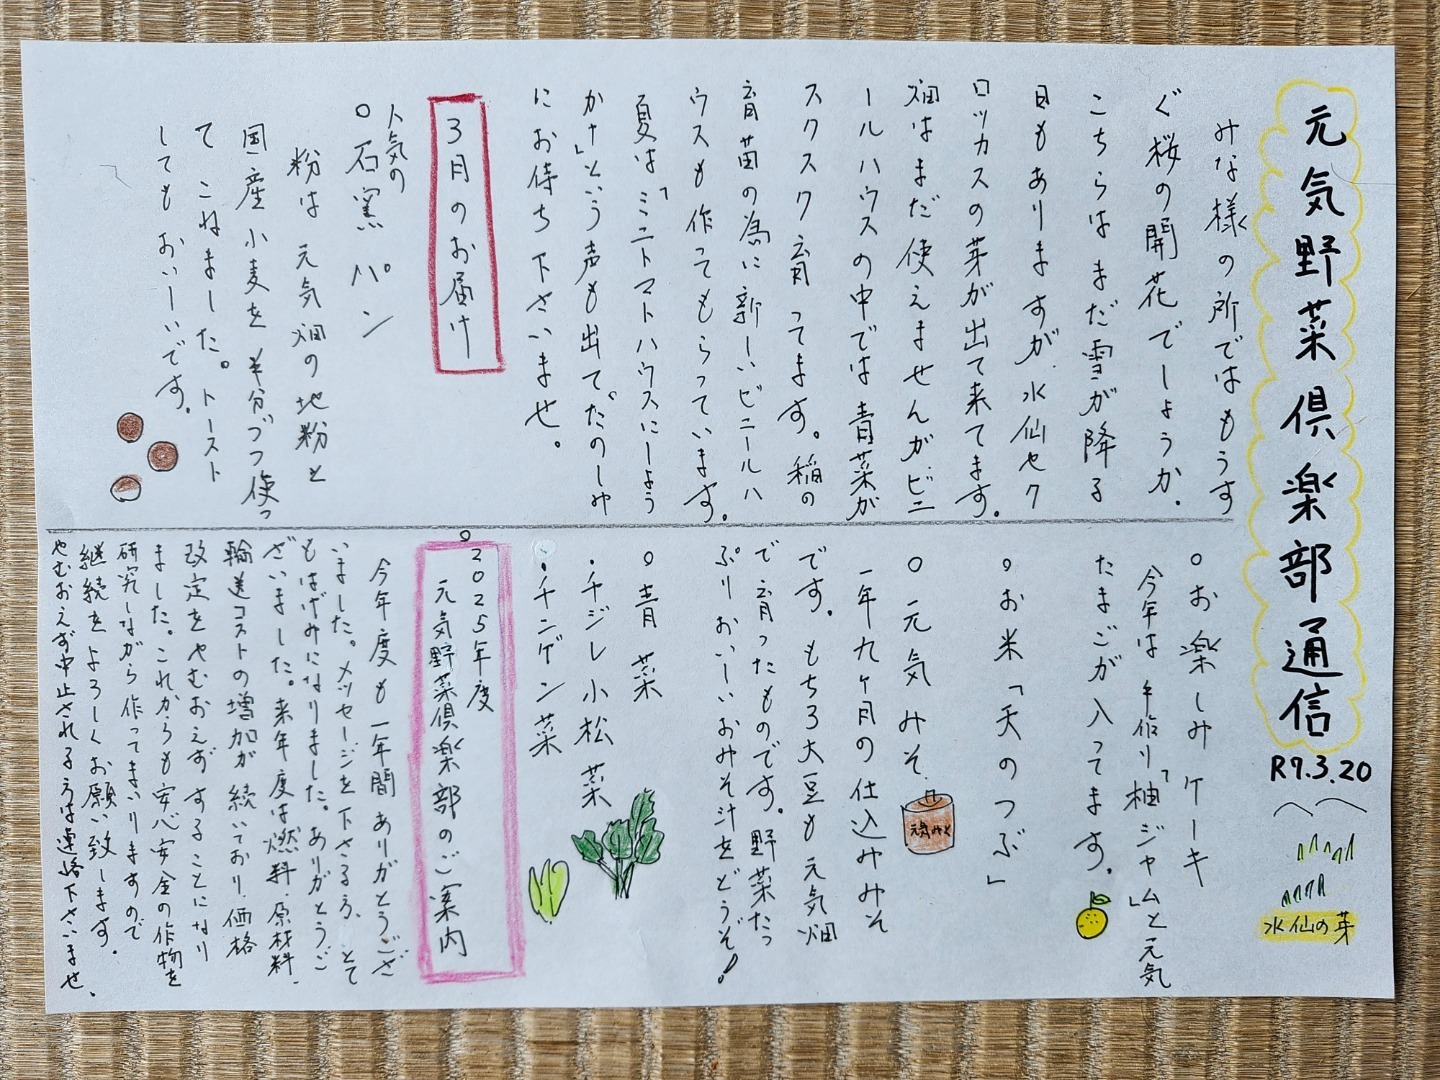 元気野菜倶楽部通信
R7.3.20
水仙の芽
みな様の所ではもうす
ぐ桜の開花でしょうか.
こちらはまだ雪が降る
日もありますが、水仙やク
ロッカスの芽が出て来てます。
畑はまだ使えませんがビニ
ールハウスの中では青菜が
スクスク育ってます。稲の
育苗の為に新しいビニールハ
ウスも作ってもらっています。
夏は「ミニトマトハウスにしよう
か!」という声も出て。たのしみ
にお待ち下さいませ。
3月のお届け
人気の
○石窯パン
粉は元気畑の地粉と
国産小麦を半分づつ使っ
てこねました。トースト
してもおいしいです。
○お楽しみケーキ
今年は手作り「柚ジャム」と元気
たまごが入ってます。
○お米「天のつぶ」
○元気みそ
一年九ヶ月の仕込みみそ
です。もちろ大豆も元気畑
で育ったものです。野菜たっ
ぷりおいしいおみそ汁をどうぞ!
元気みそ
○青菜
・チジレ小松菜
・チンゲン菜
○2025年度
元気野菜倶楽部のご案内
今年度も一年間ありがとうござ
いました。メッセージを下さる方、とて
もはげみになりました。ありがとうご
ざいました。来年度は燃料、原材料、
輸送コストの増加が続いており、価格
改定をやむおえずすることになり
ました。これからも安心安全の作物を
研究しながら作ってまいりますので
継続をよろしくお願い致します。
やむおえず中止される方は連絡下さいませ、